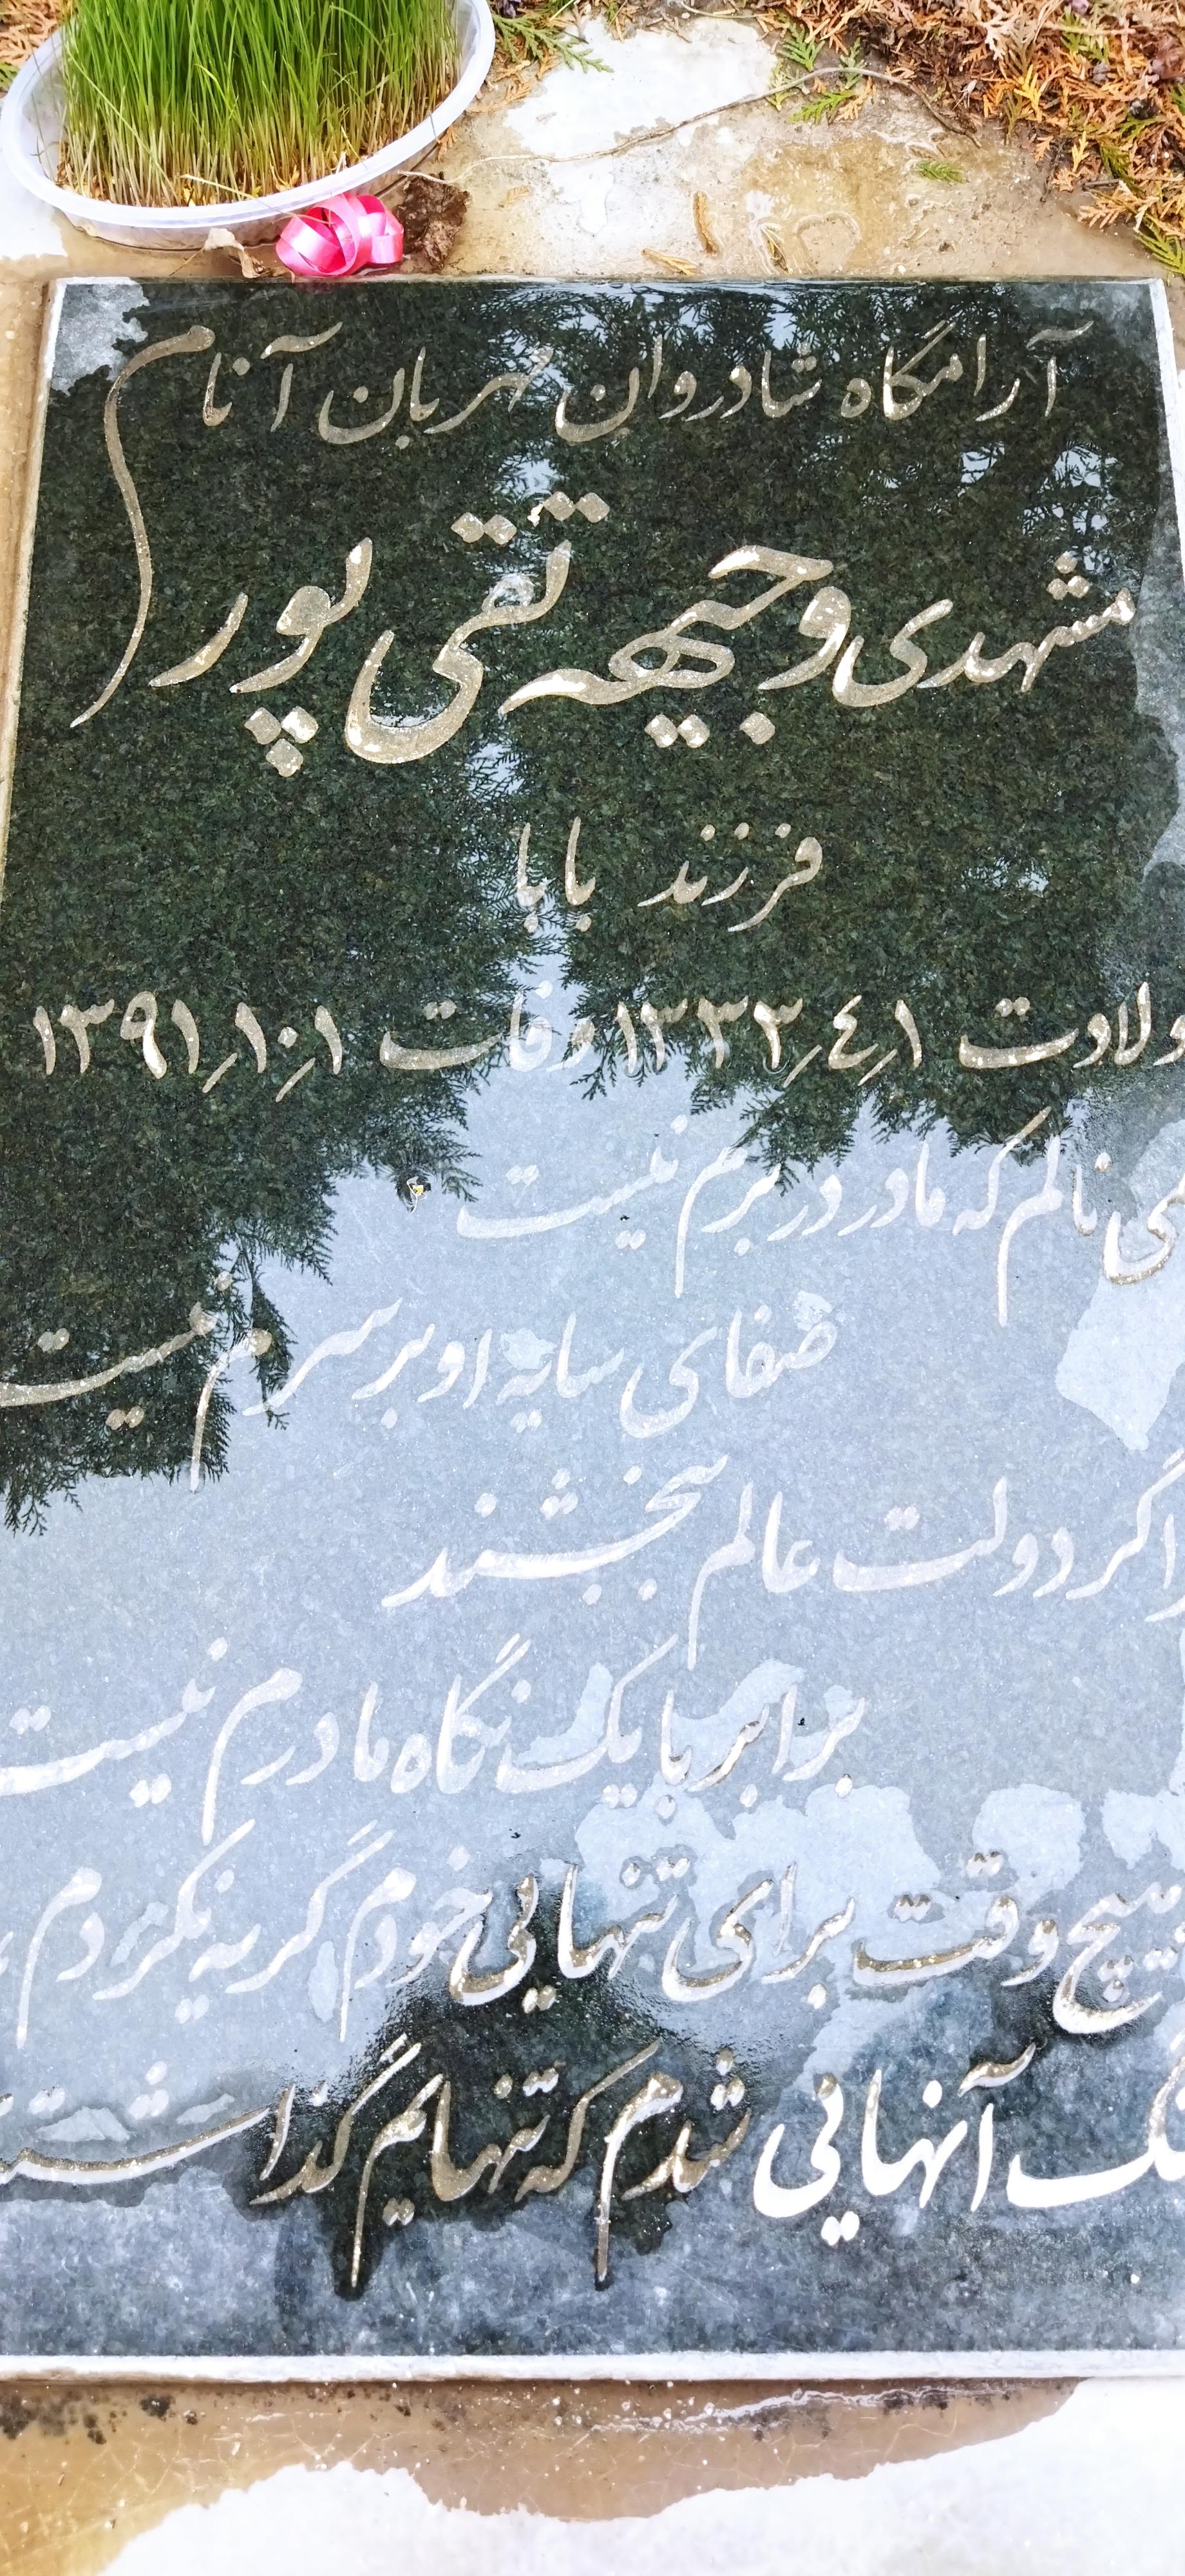 آرامگاه شادروان مهربان آنام
مشهدی وجیهه تقی پور
فرزند بابا
ولادت ۱٫٤٫۱۳۳۳ وفات ۱٫۱۰٫۱۳۹۱
نالم که مادر در برم نیست
صفای سایه او بر سرم نیست
اگر دولت عالم ببخشند
برابر با یک نگاه مادرم نیست
هیچ وقت برای تنهایی خودم گریه نکردم
آنهایی شدم که تنهایم گذاشت